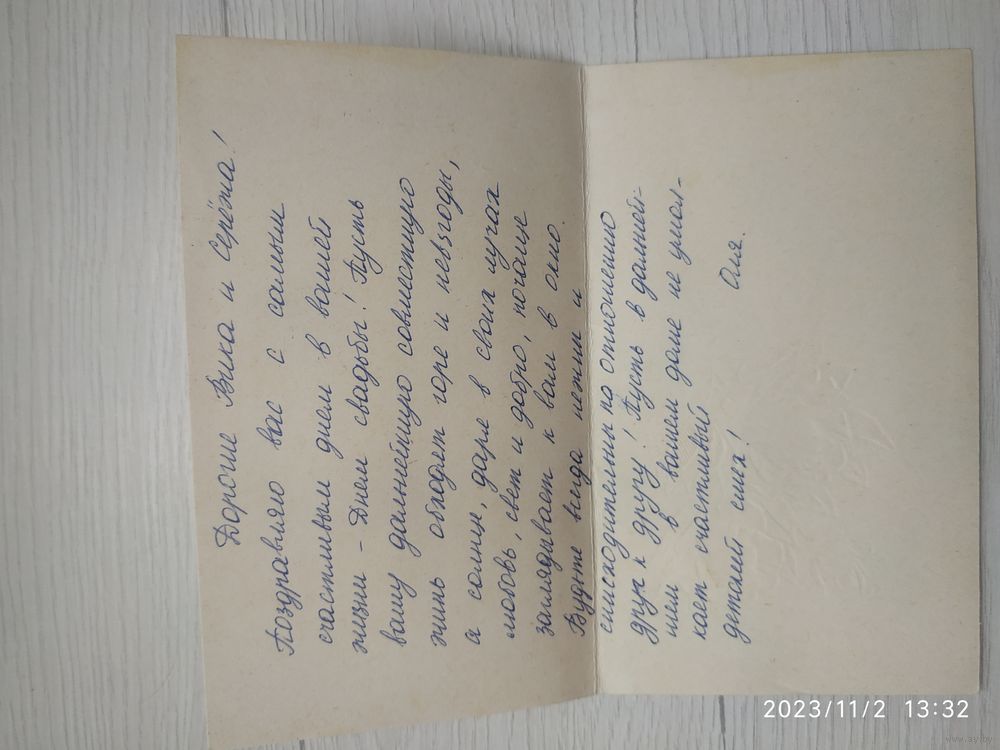 Дорогие Вика и Серёжа!
Поздравляю вас с самым
счастливым днем в вашей
жизни - Днем свадьбы! Пусть
вашу дальнейшую совместную
жизнь обходят горе и невзгоды,
а солнце, даря в своих лучах
любовь, свет и добро, почаще
заглядывает к вам в окно.
Будьте всегда нежны и
снисходительны по отношению
друг к другу! Пусть в дальней-
шем в вашем доме не умол-
кает счастливый
детский смех!
Оля.
2023/11/2 13:32
www.ay.by